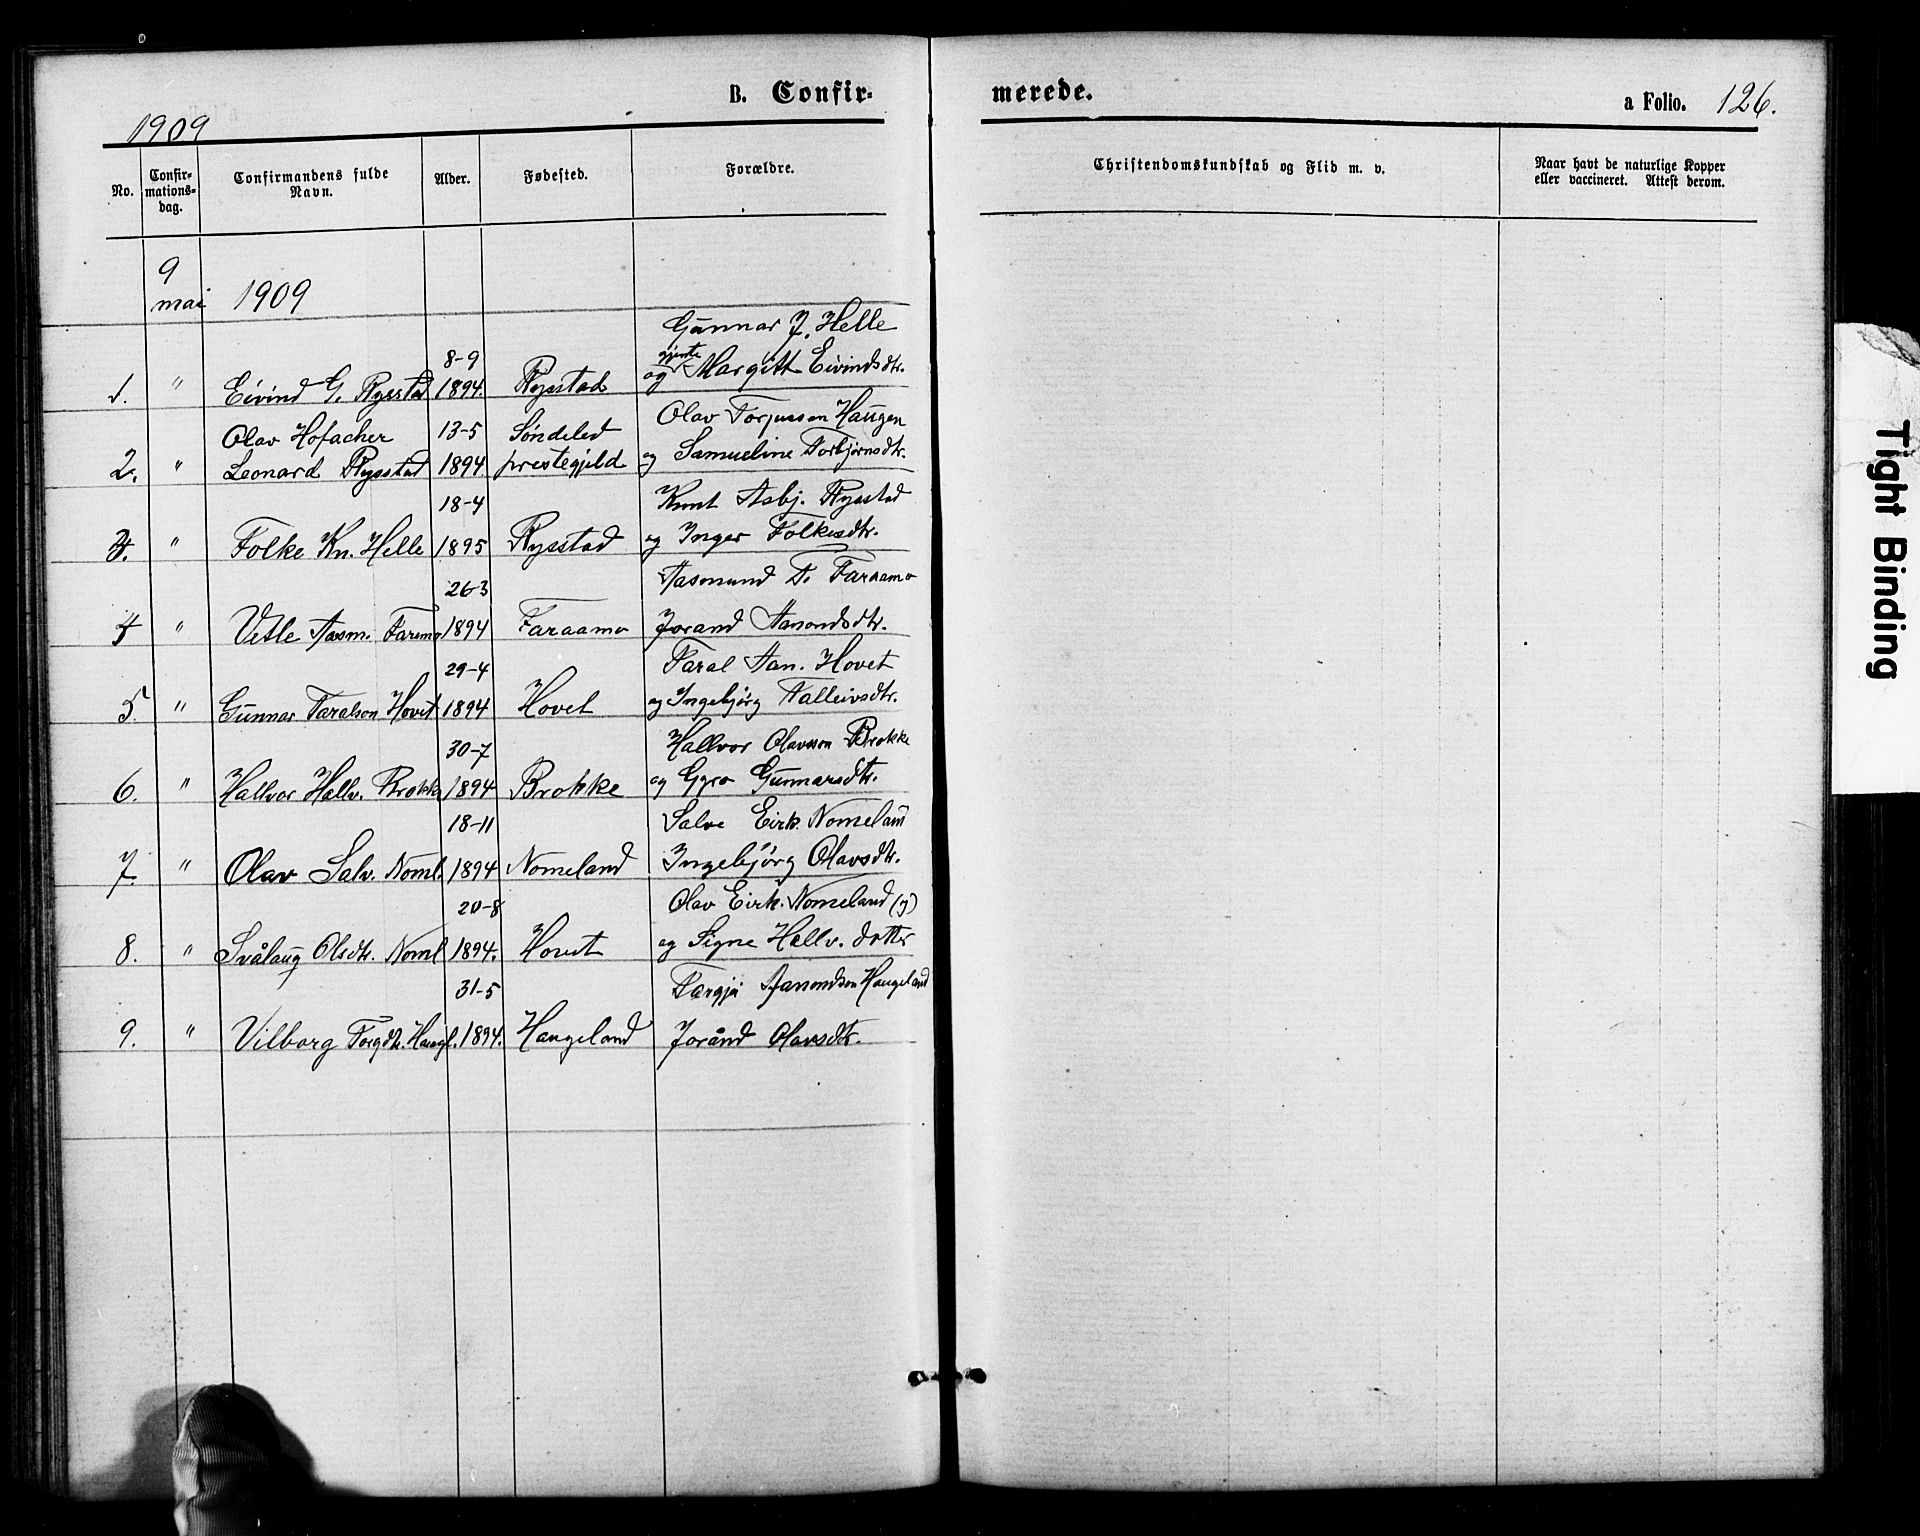 B. Confir-
merede.
a Folio. 126.
1909
No.
Confir-
mations-
dag.
Confirmandens fulde
Navn.
Alder.
Fødested.
Forældre.
Christendomskundskab og Flid m. v.
Naar havt de naturlige Kopper
eller vaccineret. Attest derom.
9
mai 1909
Gunnar J. Helle
8-9 gjente
1. " Eivind G. Rysstad 1894. Rysstad og Margitt Eivindsdtr.
Olav Hofacher 13-5 Søndeled Olav Torjussen Haugen
2. " Leonard Rysstad 1894 prestegjeld og Samueline Torbjørnsdtr.
18-4 Knut Asbj. Rysstad
3. " Folke Kn. Helle 1895 Rysstad og Inger Folkesdtr.
26-3 Aasmund T. Faraamo
4 " Vetle Aasm. Faremo 1894 Faraamo Jorand Aanondsdtr.
29-4 Taral Aan. Hovet
5. " Gunnar Taralson Hovet 1894 Hovet og Ingebjørg Talleivsdtr.
30-7 Hallvor Olavsson Brokke
6. " Hallvor Hallv. Brokke 1894 Brokke og Gyro Gunnarsdtr.
18-11 Salve Eirk. Nomeland
7. " Olav Salv. Noml. 1894 Nomeland Ingebjørg Olavsdtr.
20-8 Olav Eirk. Nomeland (y)
8. " Svålaug Olsdtr. Noml 1894. Hovet og Signe Hallv. dotter
31-5 Targjei Aanondson Haugeland
9. " Vilborg Torgdtr. Haugl. 1894. Haugeland Jorånd Olavsdtr.
Tight Binding